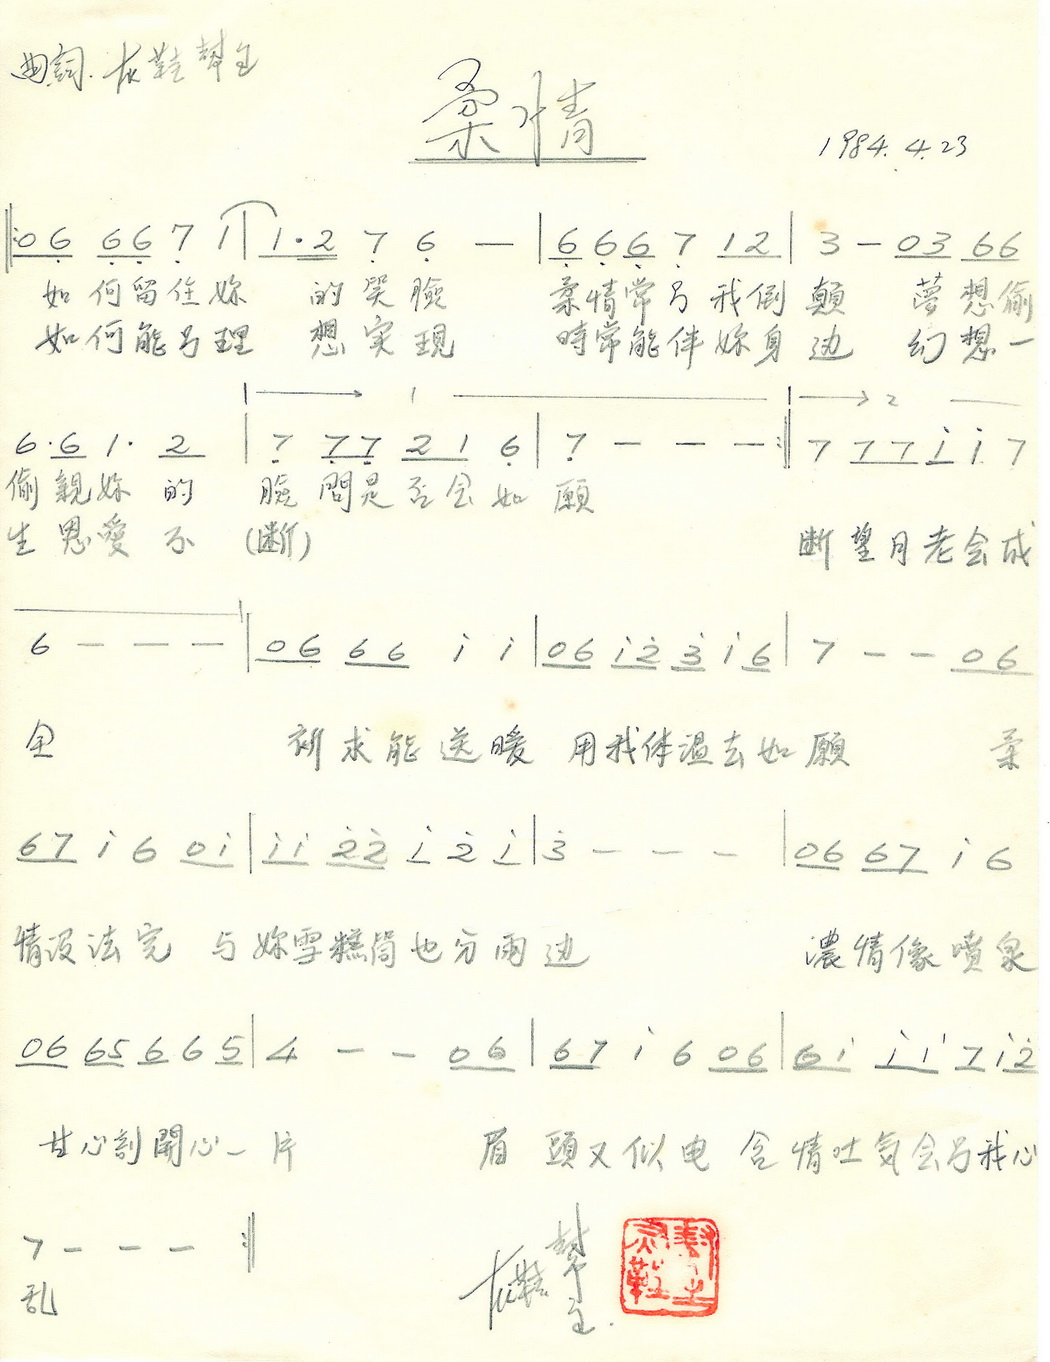 曲詞.灰鞋幫主
柔情
1984.4.23
06 66 7 1 | 1·2 7 6 — | 666 7 12 | 3 — 03 66
如何留住妳 的笑臉 柔情常另我倒顛 夢想偷
如何能另理 想実現 時常能伴妳身边 幻想一
1 2
6·6 1· 2 | 7 77 21 6 | 7 — — — :| 7 77 i i 7
偷親妳的 臉問是否会如願
生恩愛不 (断) 断望月老会成
6 — — — | 06 66 i i | 06 i2 3 i 6 | 7 — — 06
全 祈求能送暖 用我体温去如願 柔
67 i 6 0i | ii 22 i 2 i | 3 — — — | 06 67 i 6
情没法完 与妳雪糕筒也分兩边 濃情像噴泉
06 65 6 6 5 | 4 — — 06 | 67 i 6 06 | 6i ii 7 i2
甘心剖開心一片 眉頭又似电 含情吐気会另我心
7 — — — :|
乱
灰鞋幫主.